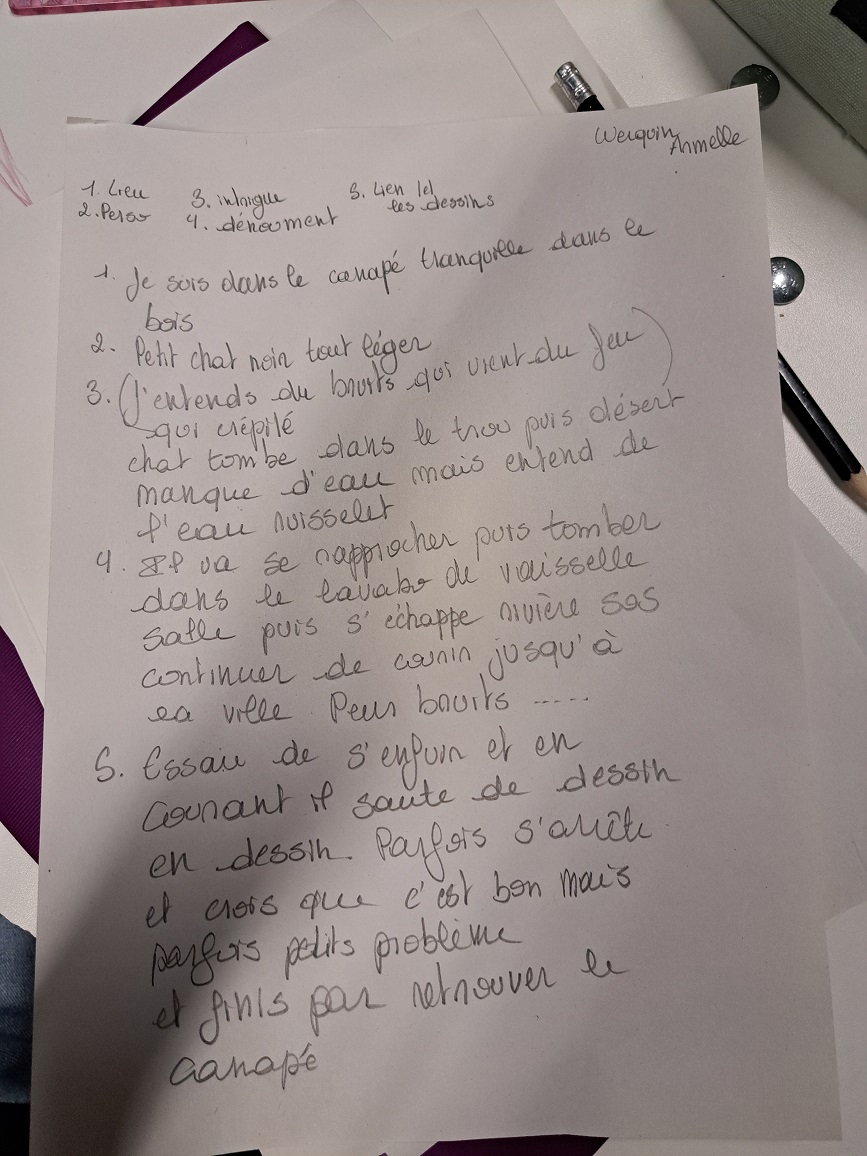 Werquin
Armelle
1. Lieu 3. intrigue 5. Lien
2. Perso 4. dénoument les dessins
1. Je suis dans le canapé tranquille dans le
bois
2. Petit chat noir tout léger
3. (J'entends du bruits qui vient du feu)
qui crépilé
chat tombe dans le trou puis désert
manque d'eau mais entend de
l'eau ruisseler
4. Il va se rapprocher puis tomber
dans le lavabo de vaisselle
salle puis s'échappe rivière sos
continuer de courir jusqu'à
la ville Peur bruits .....
5. Essaie de s'enfuir et en
courant il saute de dessin
en dessin. Parfois s'arrête
et crois que c'est bon mais
parfois petits problème
et finis par retrouver le
canapé